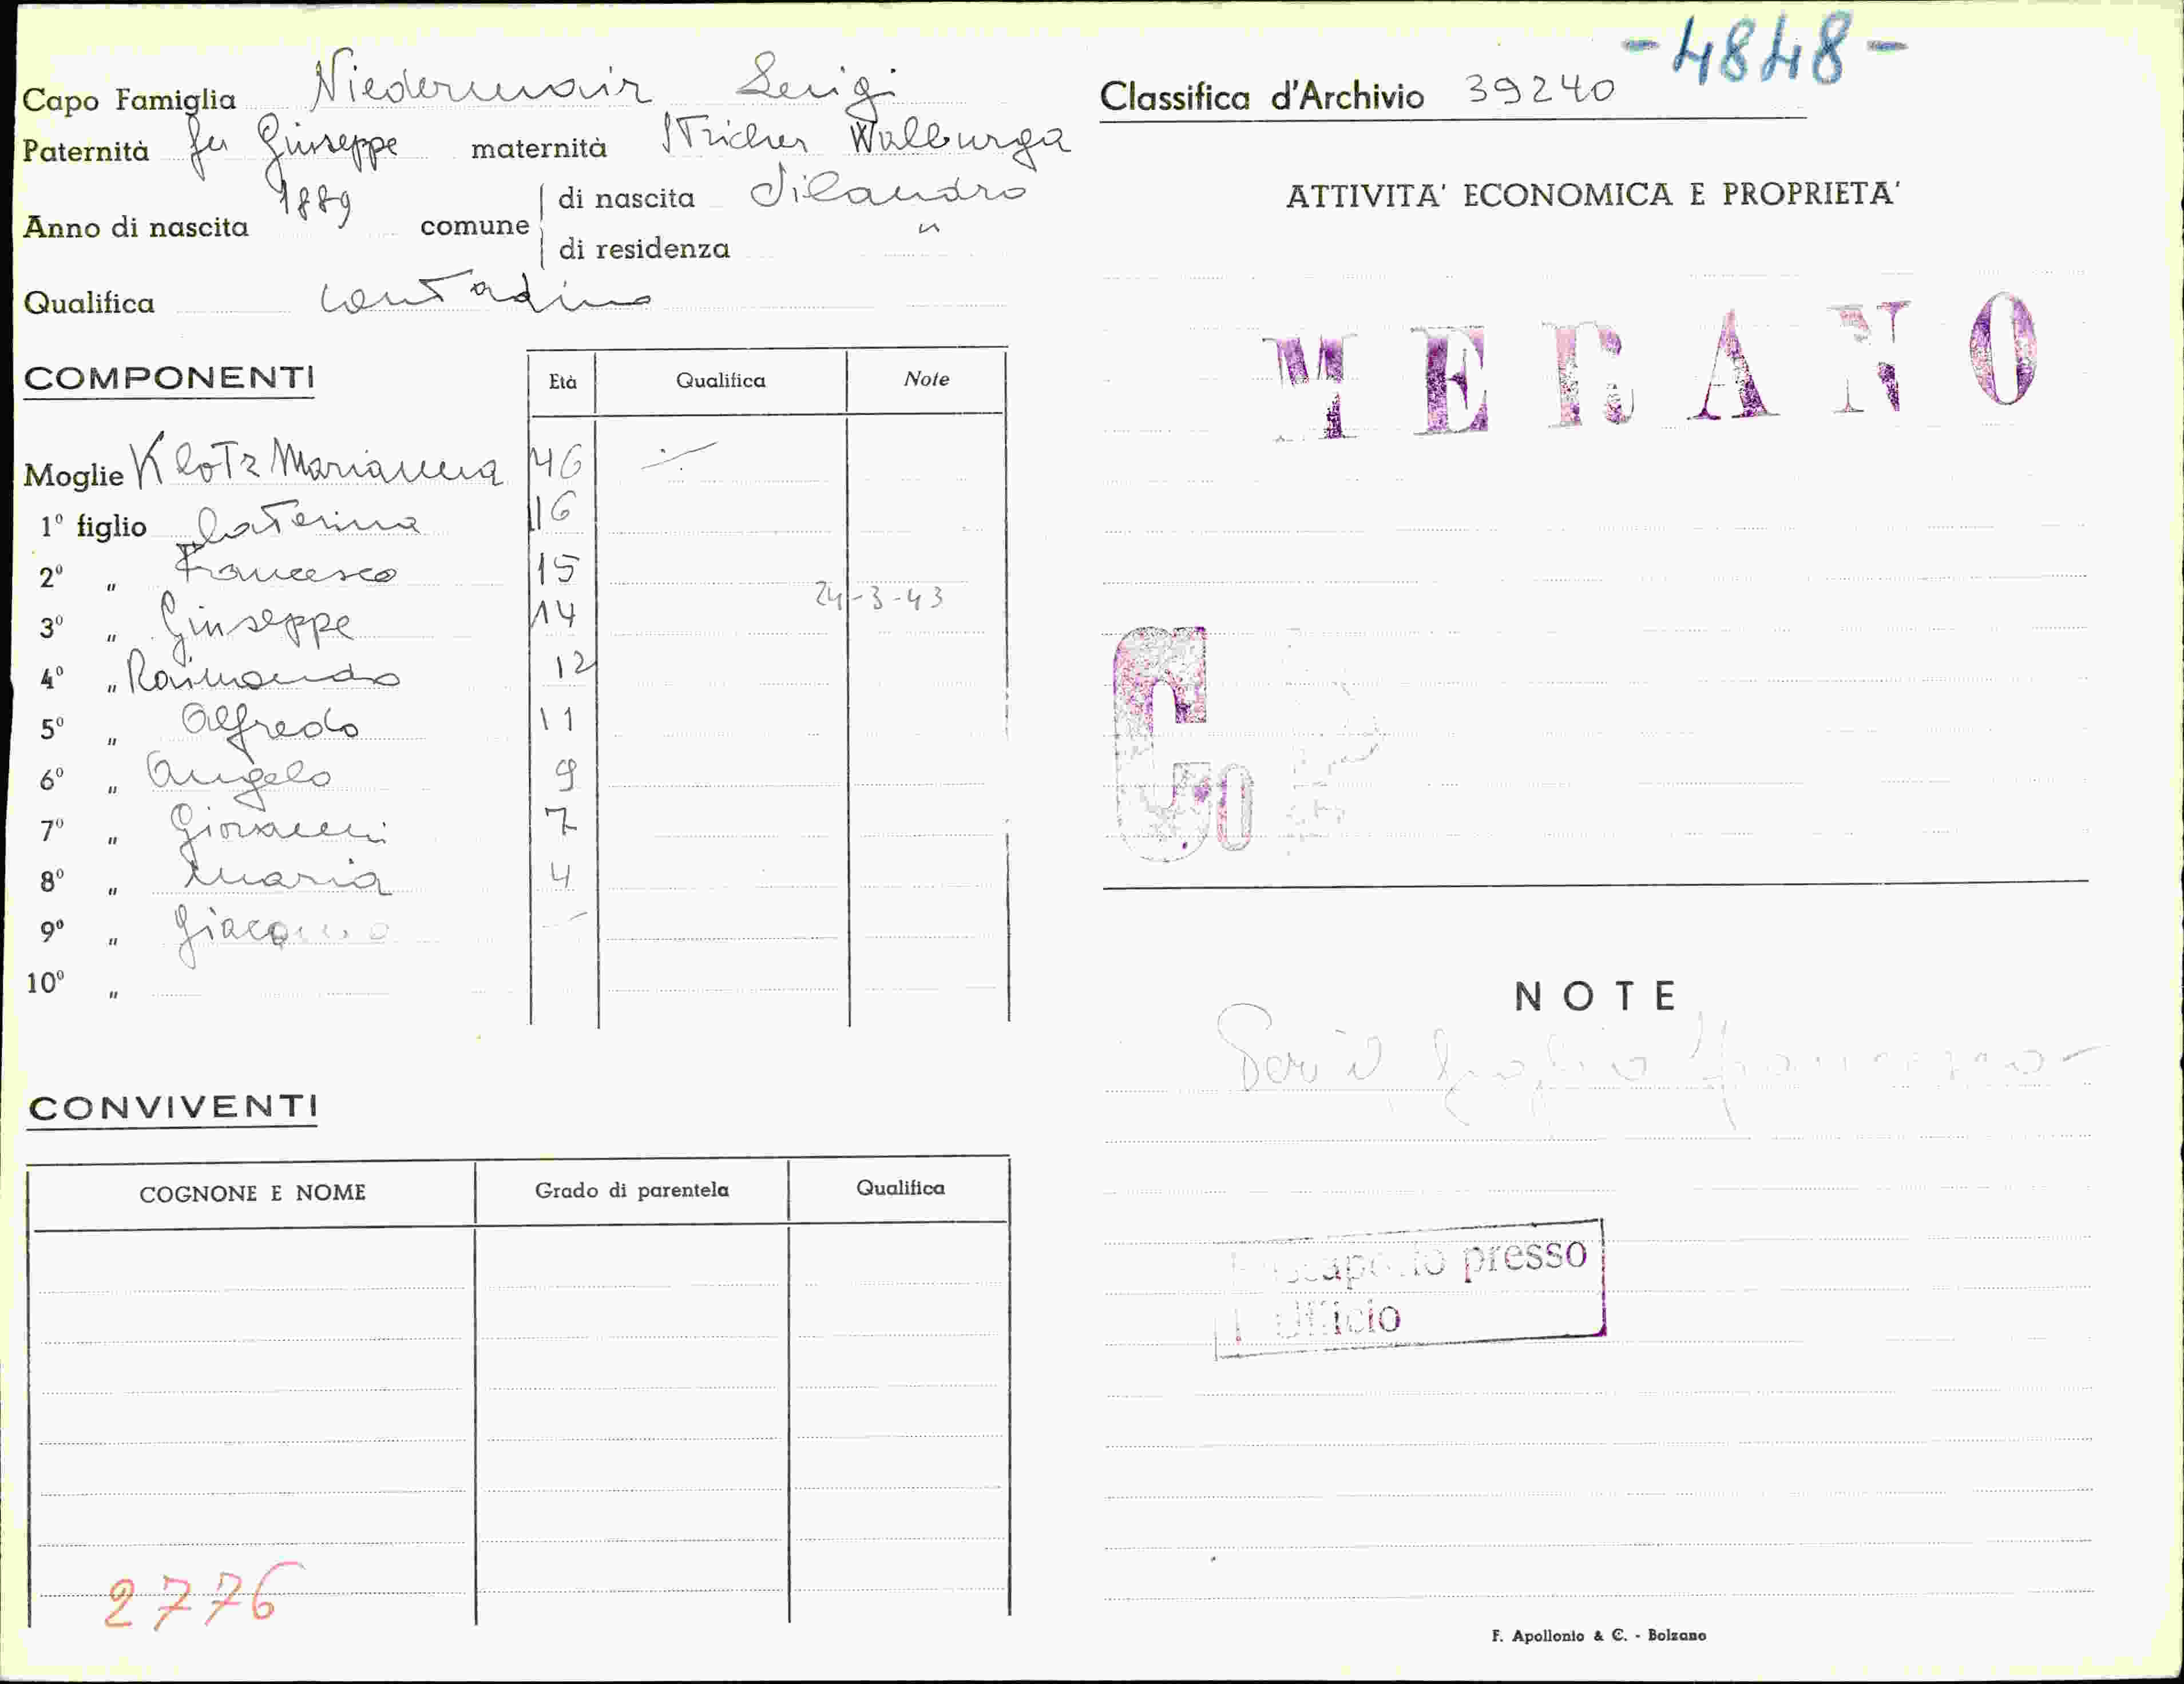 Capo Famiglia Niedermair Luigi
Paternità fu Giuseppe maternità Stricker Walburga
Anno di nascita 1889 comune di nascita Silandro
di residenza "
Qualifica contadino
COMPONENTI Età Qualifica Note
Moglie Klotz Marianna 46 -
1º figlio Caterina 16
2º " Francesco 15
24-3-43
3º " Giuseppe 14
4º " Raimondo 12
5º " Alfredo 11
6º " Angelo 9
7º " Giovanni 7
8º " Maria 4
9º " Giacomo -
10º "
CONVIVENTI
COGNONE E NOME Grado di parentela Qualifica
2776
-4848-
Classifica d'Archivio 39240
ATTIVITA' ECONOMICA E PROPRIETA'
MERANO
G
NOTE
Per il foglio
presso
Ufficio
F. Apollonio & C. - Bolzano